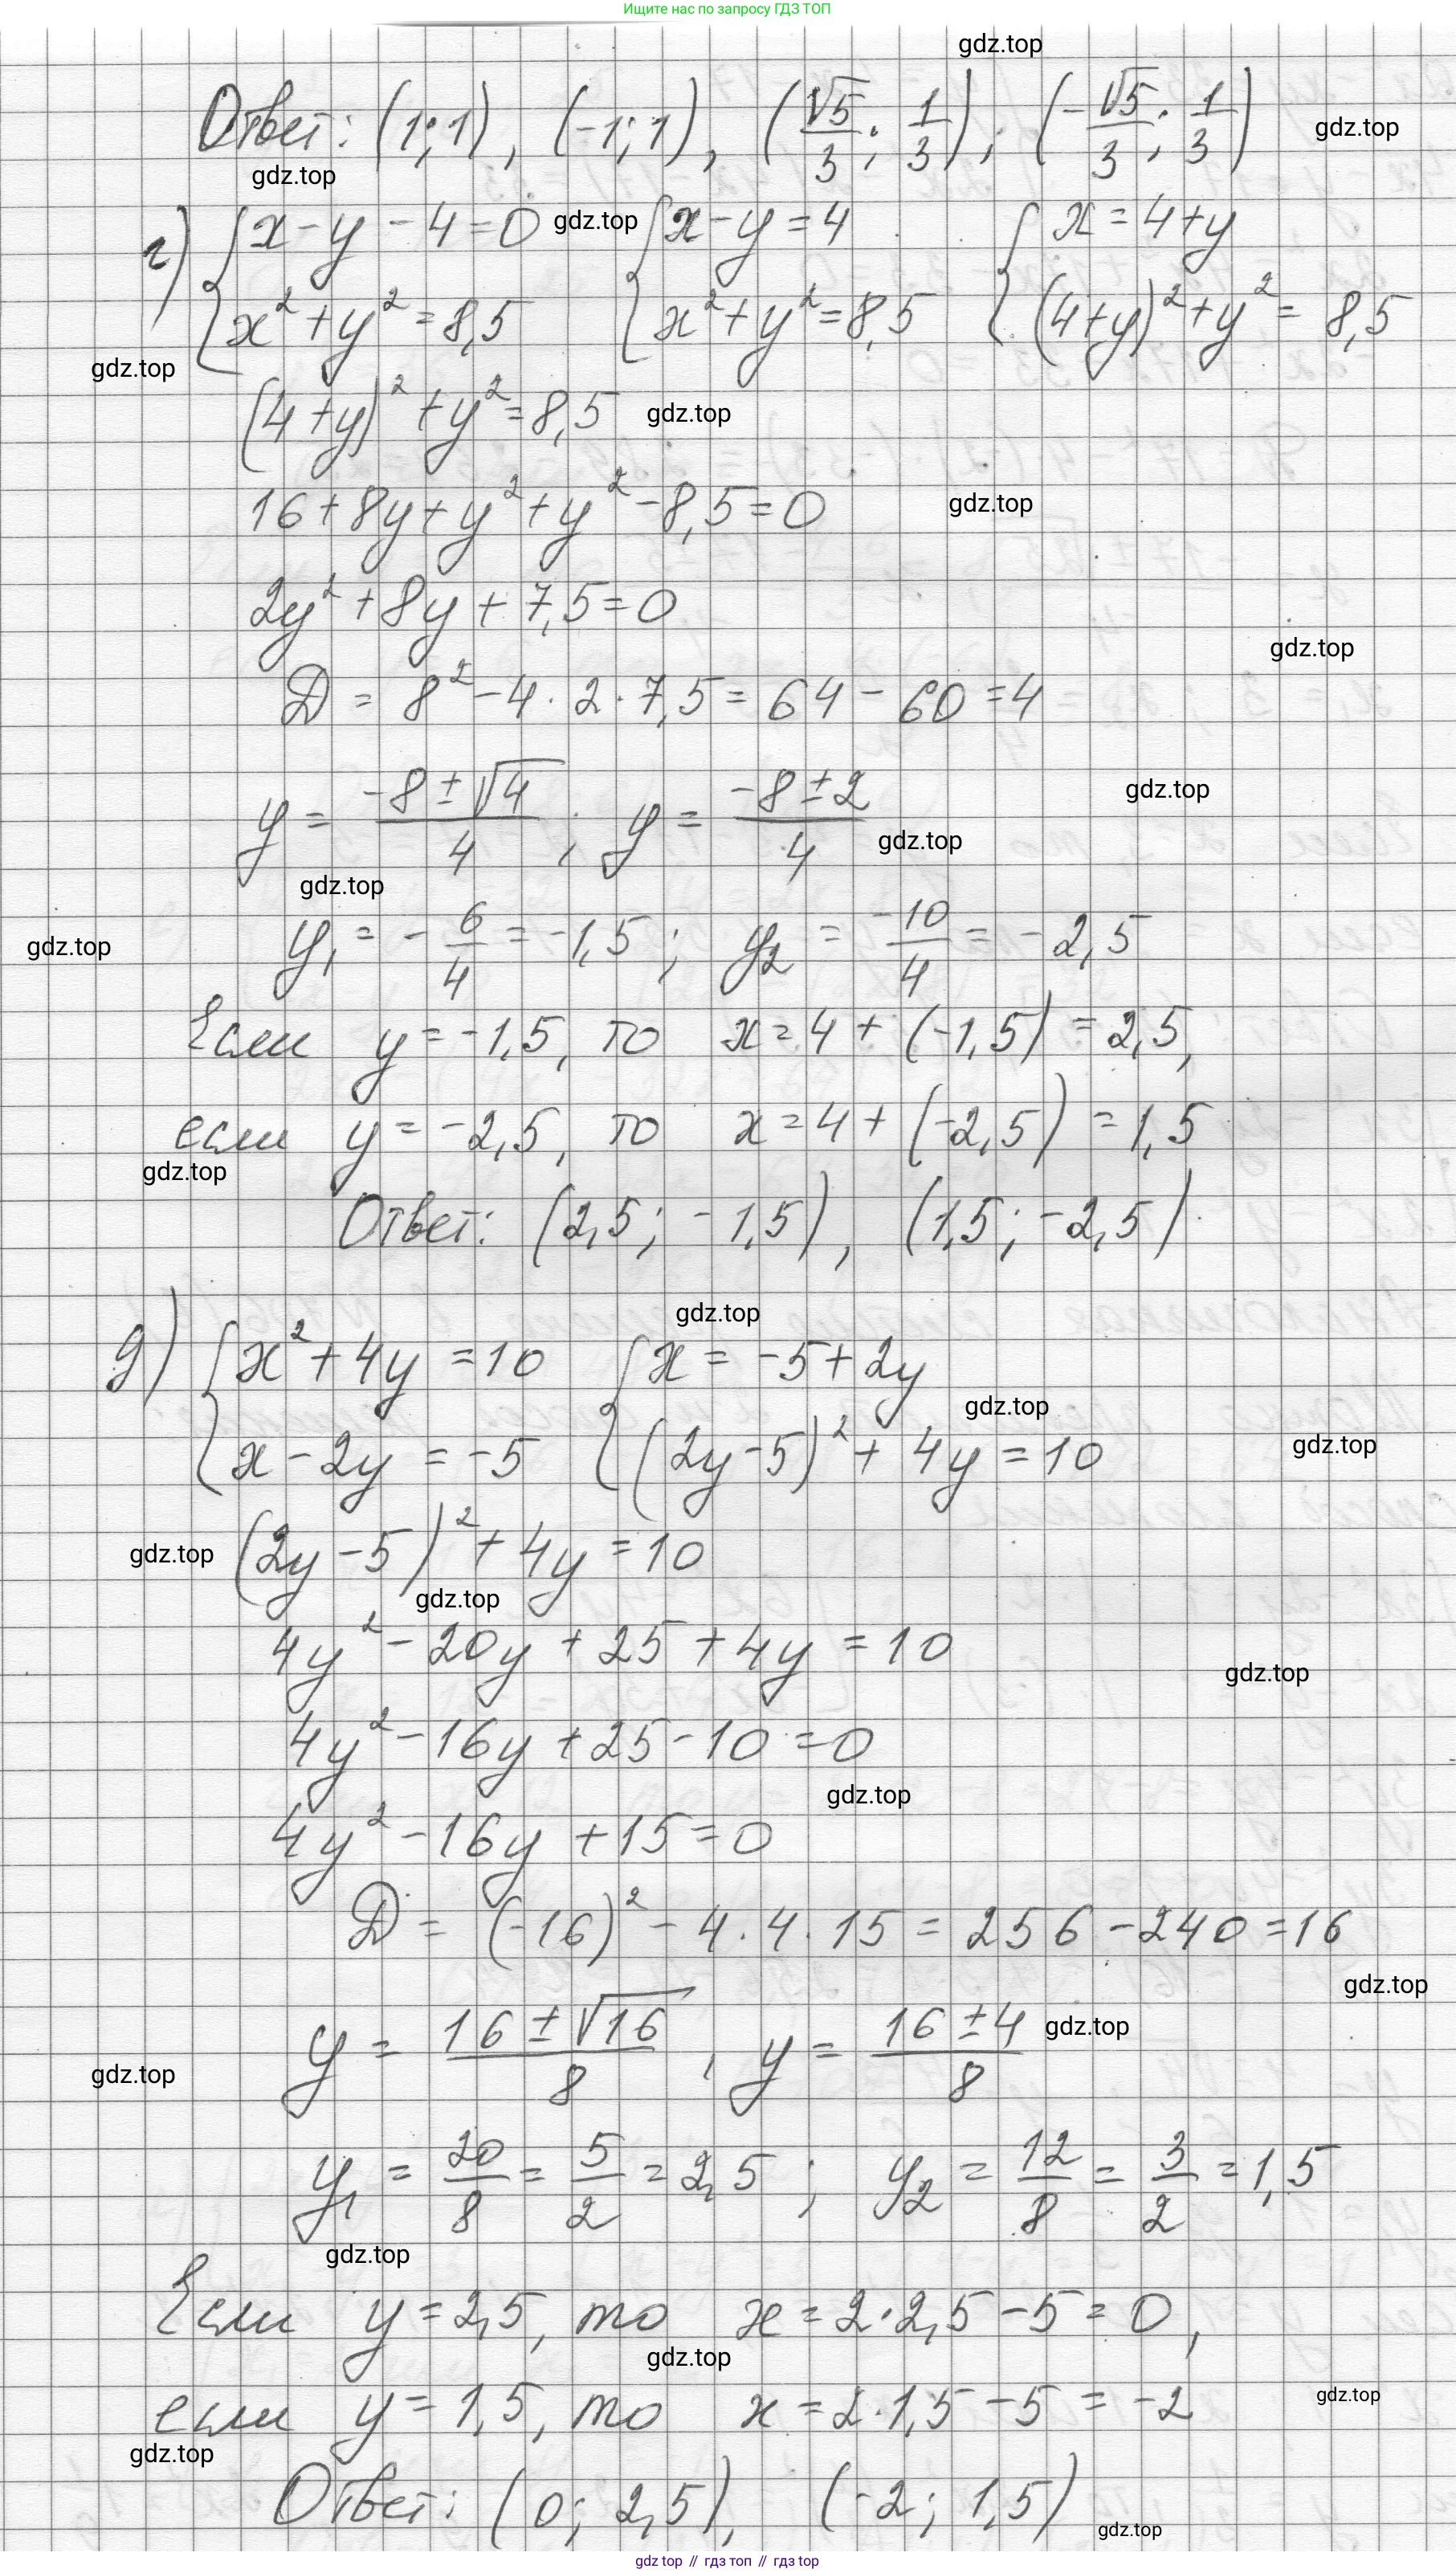 Ищите нас по запросу ГДЗ ТОП
gdz.top
Ответ: (1; 1), (-1; 1), (√5/3; 1/3); (-√5/3; 1/3)
gdz.top
gdz.top
г) { x - y - 4 = 0 gdz.top { x - y = 4 { x = 4 + y
{ x² + y² = 8,5 { x² + y² = 8,5 { (4 + y)² + y² = 8,5
gdz.top
(4 + y)² + y² = 8,5 gdz.top
16 + 8y + y² + y² - 8,5 = 0 gdz.top
2y² + 8y + 7,5 = 0
gdz.top
D = 8² - 4 · 2 · 7,5 = 64 - 60 = 4
y = (-8 ± √4)/4 ; y = (-8 ± 2)/4 gdz.top
gdz.top
gdz.top
y₁ = -6/4 = -1,5 ; y₂ = -10/4 = -2,5
gdz.top
Если y = -1,5, то x = 4 + (-1,5) = 2,5,
если y = -2,5, то x = 4 + (-2,5) = 1,5
gdz.top
Ответ: (2,5; -1,5), (1,5; -2,5)
gdz.top
д) { x² + 4y = 10 { x = -5 + 2y
gdz.top
{ x - 2y = -5 { (2y - 5)² + 4y = 10
gdz.top
gdz.top (2y - 5)² + 4y = 10
gdz.top
4y² - 20y + 25 + 4y = 10
gdz.top
4y² - 16y + 25 - 10 = 0
gdz.top
4y² - 16y + 15 = 0
D = (-16)² - 4 · 4 · 15 = 256 - 240 = 16
gdz.top
y = (16 ± √16)/8 , y = (16 ± 4)/8 gdz.top
gdz.top
y₁ = 20/8 = 5/2 = 2,5 ; y₂ = 12/8 = 3/2 = 1,5
gdz.top
Если y = 2,5, то x = 2 · 2,5 - 5 = 0,
gdz.top
если y = 1,5, то x = 2 · 1,5 - 5 = -2
gdz.top
gdz.top
Ответ: (0; 2,5), (-2; 1,5)
gdz.top
gdz.top // гдз топ // гдз.top